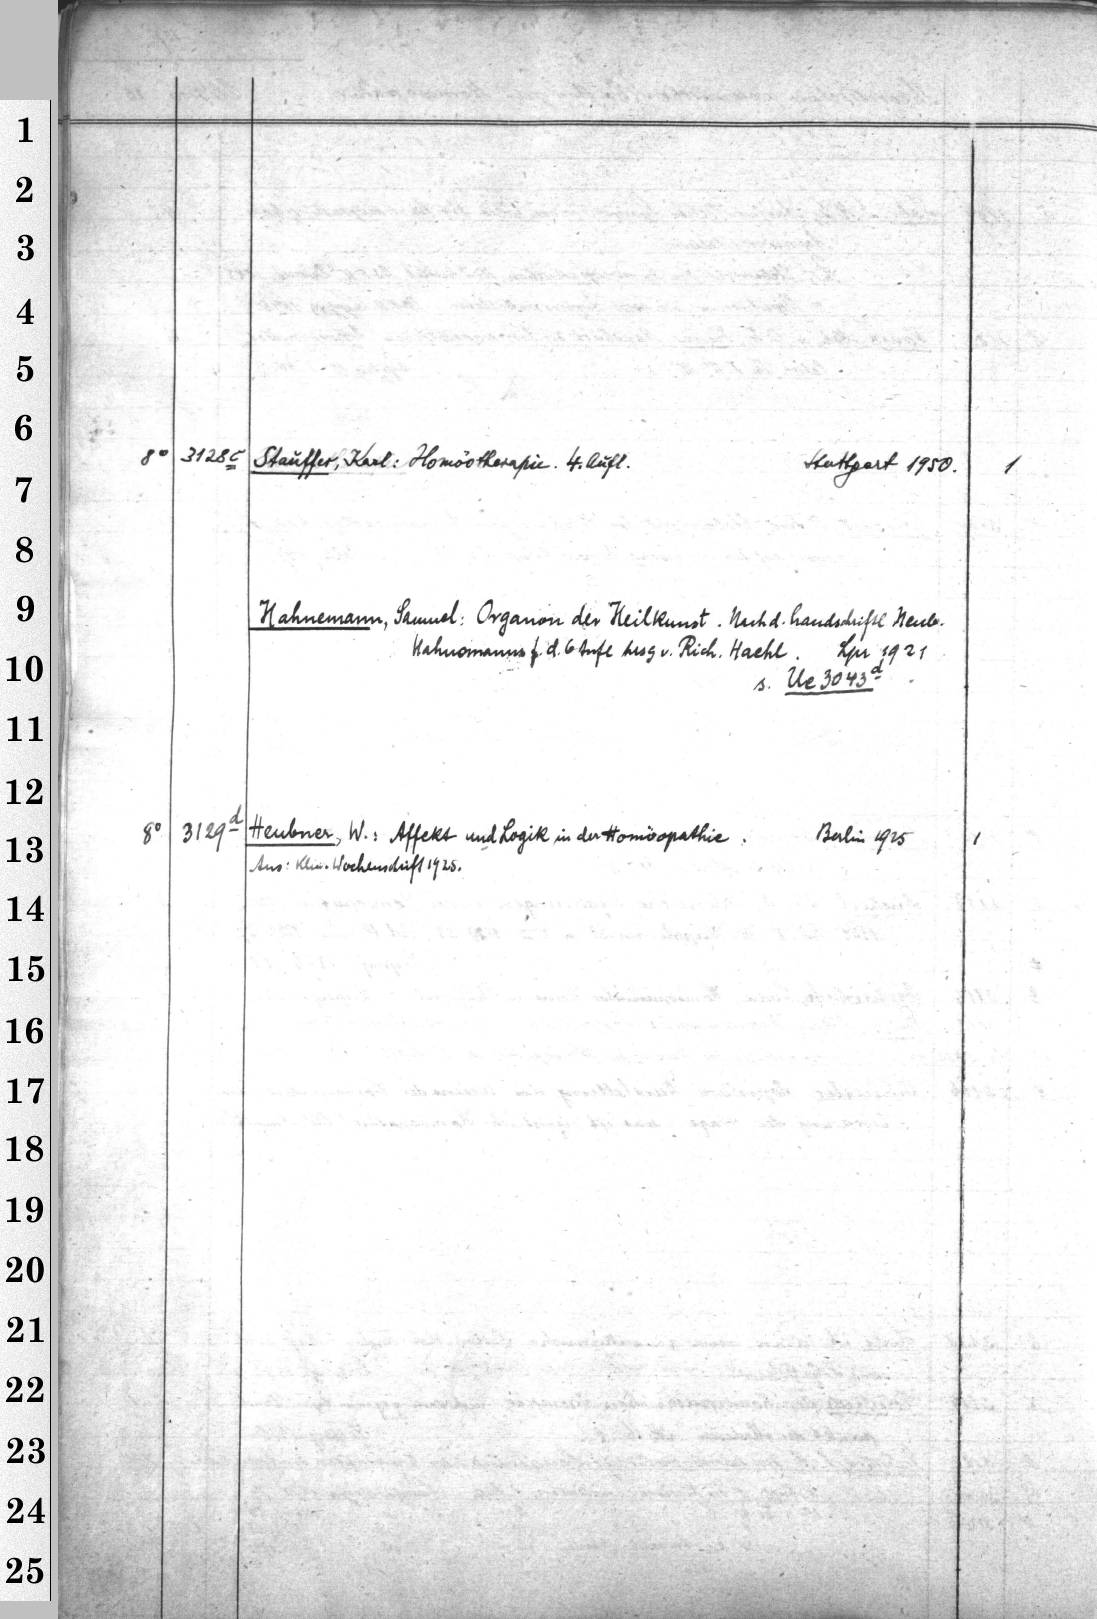 1
2
3
4
5
6
8° 3128c Stauffer, Karl: Homöotherapie. 4. Aufl. Stuttgart 1950. 1
7
8
9 Hahnemann, Samuel: Organon der Heilkunst. Nach d. handschriftl Neub.
Hahnemanns f. d. 6 Aufl hrsg v. Rich. Haehl. Lpz 1921
10 s. Ue 3043d
11
12
8° 3129d Heubner, W.: Affekt und Logik in der Homöopathie. Berlin 1925 1
13 Aus: Klin. Wochenschrift 1925.
14
15
16
17
18
19
20
21
22
23
24
25